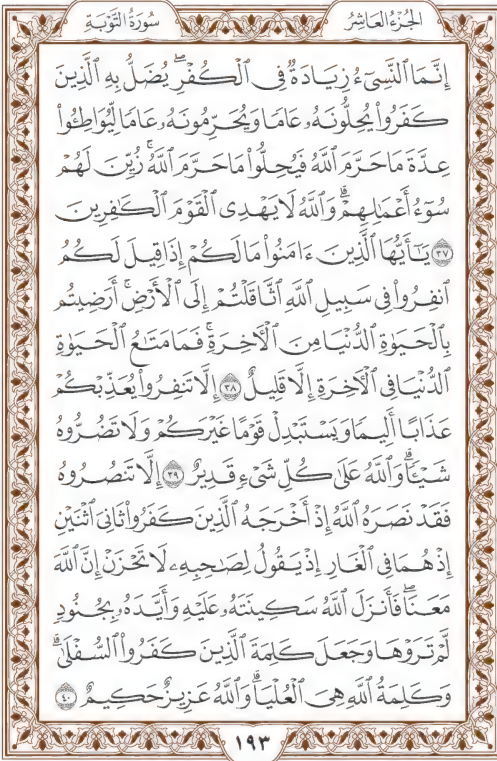 الجزء العاشر
سورة التوبة
إِنَّمَا ٱلنَّسِىٓءُ زِيَادَةٌ فِى ٱلْكُفْرِ ۖ يُضَلُّ بِهِ ٱلَّذِينَ
كَفَرُوا۟ يُحِلُّونَهُۥ عَامًا وَيُحَرِّمُونَهُۥ عَامًا لِّيُوَاطِـُٔوا۟
عِدَّةَ مَا حَرَّمَ ٱللَّهُ فَيُحِلُّوا۟ مَا حَرَّمَ ٱللَّهُ ۚ زُيِّنَ لَهُمْ
سُوٓءُ أَعْمَـٰلِهِمْ ۗ وَٱللَّهُ لَا يَهْدِى ٱلْقَوْمَ ٱلْكَـٰفِرِينَ
٣٧ يَـٰٓأَيُّهَا ٱلَّذِينَ ءَامَنُوا۟ مَا لَكُمْ إِذَا قِيلَ لَكُمُ
ٱنفِرُوا۟ فِى سَبِيلِ ٱللَّهِ ٱثَّاقَلْتُمْ إِلَى ٱلْأَرْضِ ۚ أَرَضِيتُم
بِٱلْحَيَوٰةِ ٱلدُّنْيَا مِنَ ٱلْـَٔاخِرَةِ ۚ فَمَا مَتَـٰعُ ٱلْحَيَوٰةِ
ٱلدُّنْيَا فِى ٱلْـَٔاخِرَةِ إِلَّا قَلِيلٌ ٣٨ إِلَّا تَنفِرُوا۟ يُعَذِّبْكُمْ
عَذَابًا أَلِيمًا وَيَسْتَبْدِلْ قَوْمًا غَيْرَكُمْ وَلَا تَضُرُّوهُ
شَيْـًٔا ۗ وَٱللَّهُ عَلَىٰ كُلِّ شَىْءٍ قَدِيرٌ ٣٩ إِلَّا تَنصُرُوهُ
فَقَدْ نَصَرَهُ ٱللَّهُ إِذْ أَخْرَجَهُ ٱلَّذِينَ كَفَرُوا۟ ثَانِىَ ٱثْنَيْنِ
إِذْ هُمَا فِى ٱلْغَارِ إِذْ يَقُولُ لِصَـٰحِبِهِۦ لَا تَحْزَنْ إِنَّ ٱللَّهَ
مَعَنَا ۖ فَأَنزَلَ ٱللَّهُ سَكِينَتَهُۥ عَلَيْهِ وَأَيَّدَهُۥ بِجُنُودٍ
لَّمْ تَرَوْهَا وَجَعَلَ كَلِمَةَ ٱلَّذِينَ كَفَرُوا۟ ٱلسُّفْلَىٰ ۗ
وَكَلِمَةُ ٱللَّهِ هِىَ ٱلْعُلْيَا ۗ وَٱللَّهُ عَزِيزٌ حَكِيمٌ ٤٠
١٩٣